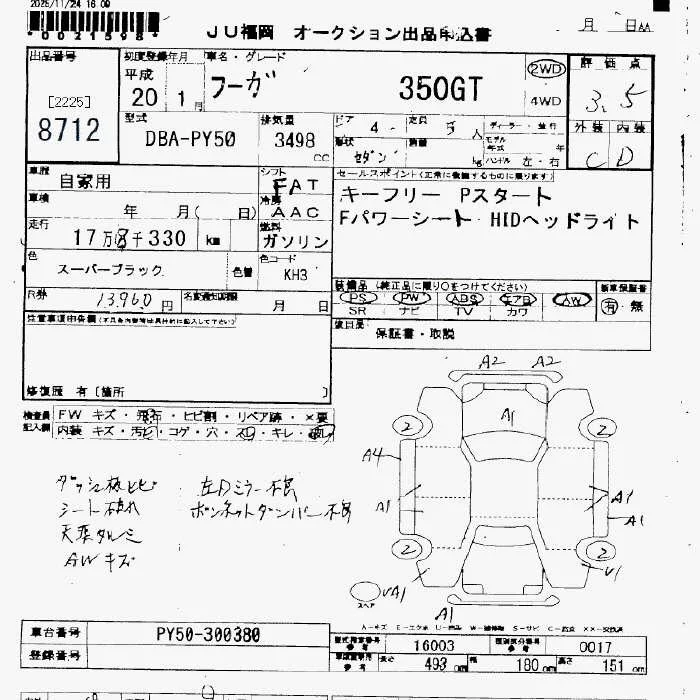 2025/11/24 16:09
*0021598*
JU福岡 オークション出品申込書
月 日
出品番号
[2225]
8712
初度登録年月
平成
20 1月
車名・グレード
フーガ 350GT
2WD
4WD
評価点
3.5
外装 内装
C D
型式
DBA-PY50
排気量
3498
cc
ドア
4
定員
5人
形状
セダン
積量
kg
ディーラー・並行
モデル年式 年
ハンドル 左・右
車歴
自家用
シフト
FAT
車検
年 月( 日)
冷房
AAC
走行
17万8千330 km
燃料
ガソリン
色
スーパーブラック
色替
色コード
KH3
R券
13,960円
名変通知期限
月 日
セールスポイント(正常に機能するものに限ります)
キーフリー Pスタート
Fパワーシート HIDヘッドライト
装備品 (純正品に限り○をつけてください)
PS PW ABS エアB AW
SR ナビ TV カワ
新車保証書
有・無
後日品
保証書・取説
注意事項申告欄
修復歴 有 〔箇所 〕
検査員記入欄
FW キズ・飛石・ヒビ割・リペア跡・×要
内装 キズ・汚ビ・コゲ・穴・スレ・キレ・破レ
ダッシュ板ヒビ 左Dミラー不良
シート破れ ボンネットダンパー不良
天張タルミ
AWキズ
A2 A2
A1
2 2
A4
A1 A1
A1
2 2
V1
UA1
スペア
A1
車台番号
PY50-300380
登録番号
型式指定番号
16003
類別区分番号
0017
参考
長さ 493 cm
幅 180 cm
高さ 151 cm